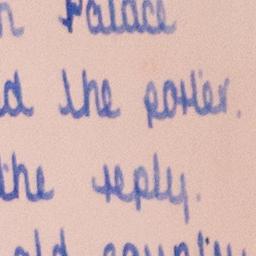 n Palace
d the porter.
the reply.
old